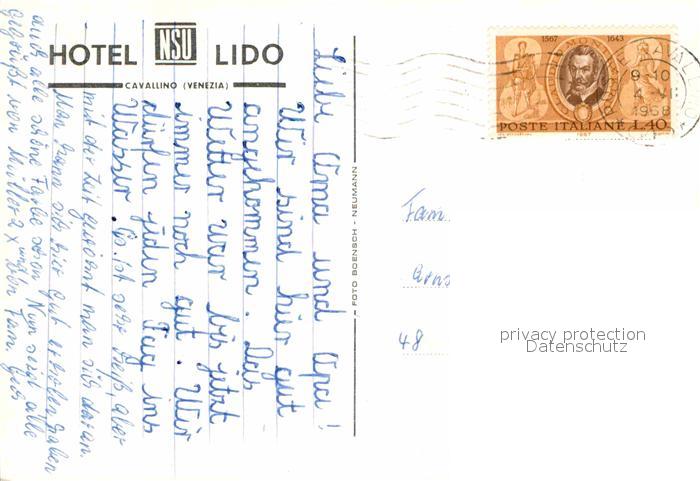 HOTEL NSU LIDO
CAVALLINO (VENEZIA)
1567 1643
MONTE
9-10
4 VI
1968
POSTE ITALIANE L.40
FOTO BOENSCH - NEUMANN
Liebe Oma und Opa!
Wir sind hier gut
angekommen. Das
Wetter war bis jetzt
immer noch gut. Wir
dürfen jeden Tag ins
Wasser. Es ist sehr heiß, aber
mit der Zeit gewöhnt man sich daran.
Man kann sich hier gut erholen, haben
auch alle schöne Farbe schon. Nun seid alle
gegrüßt von Müller 2 x und den Fam.
Fam.
48
privacy protection
Datenschutz